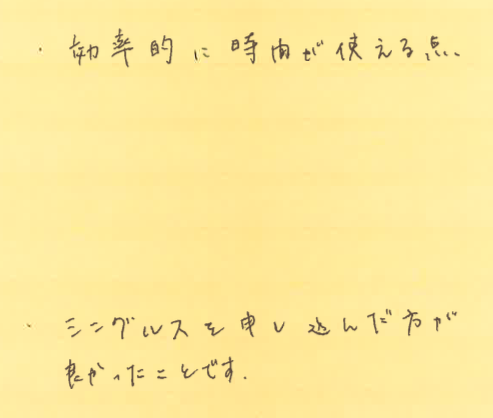 ・効率的に時間が使える点.
・シングルスを申し込んだ方が
良かったことです.